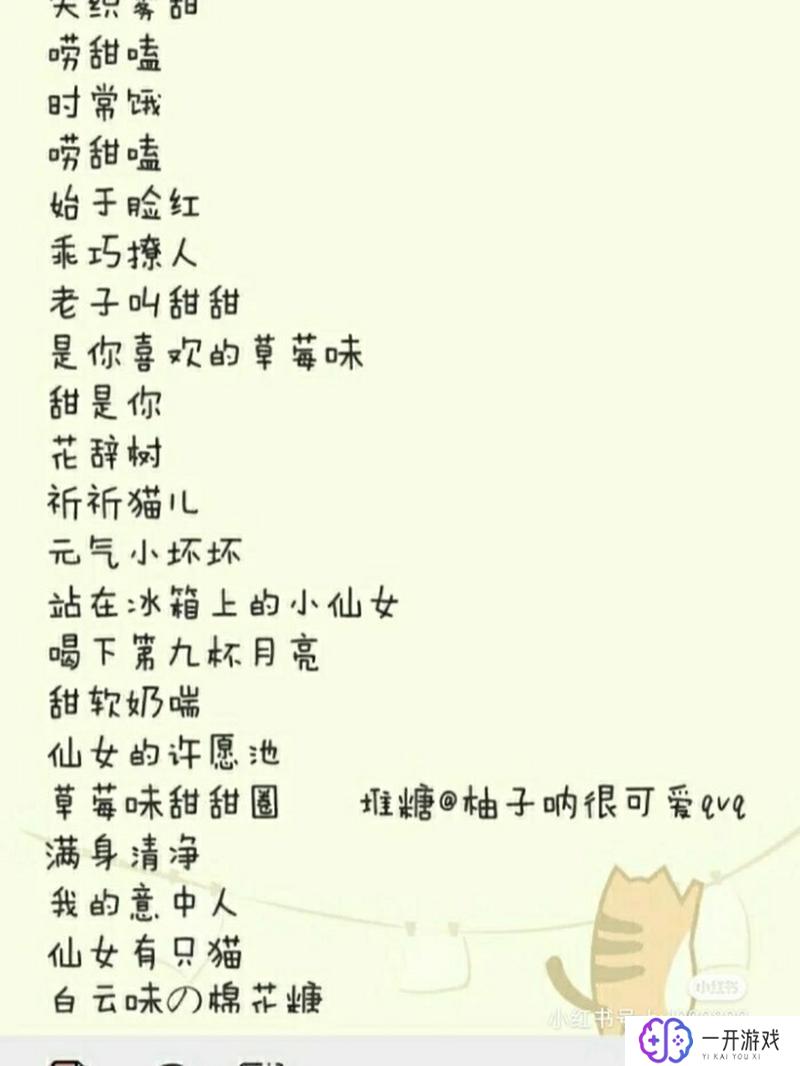 唠甜嗑
时常饿
唠甜嗑
始于脸红
乖巧撩人
老子叫甜甜
是你喜欢的草莓味
甜是你
花辞树
祈祈猫儿
元气小坏坏
站在冰箱上的小仙女
喝下第九杯月亮
甜软奶喘
仙女的许愿池
草莓味甜甜圈 堆糖@柚子呐很可爱qvq
满身清净
我的意中人
仙女有只猫
白云味の棉花糖
小红书
小红书号
一开游戏
YI KAI YOU XI